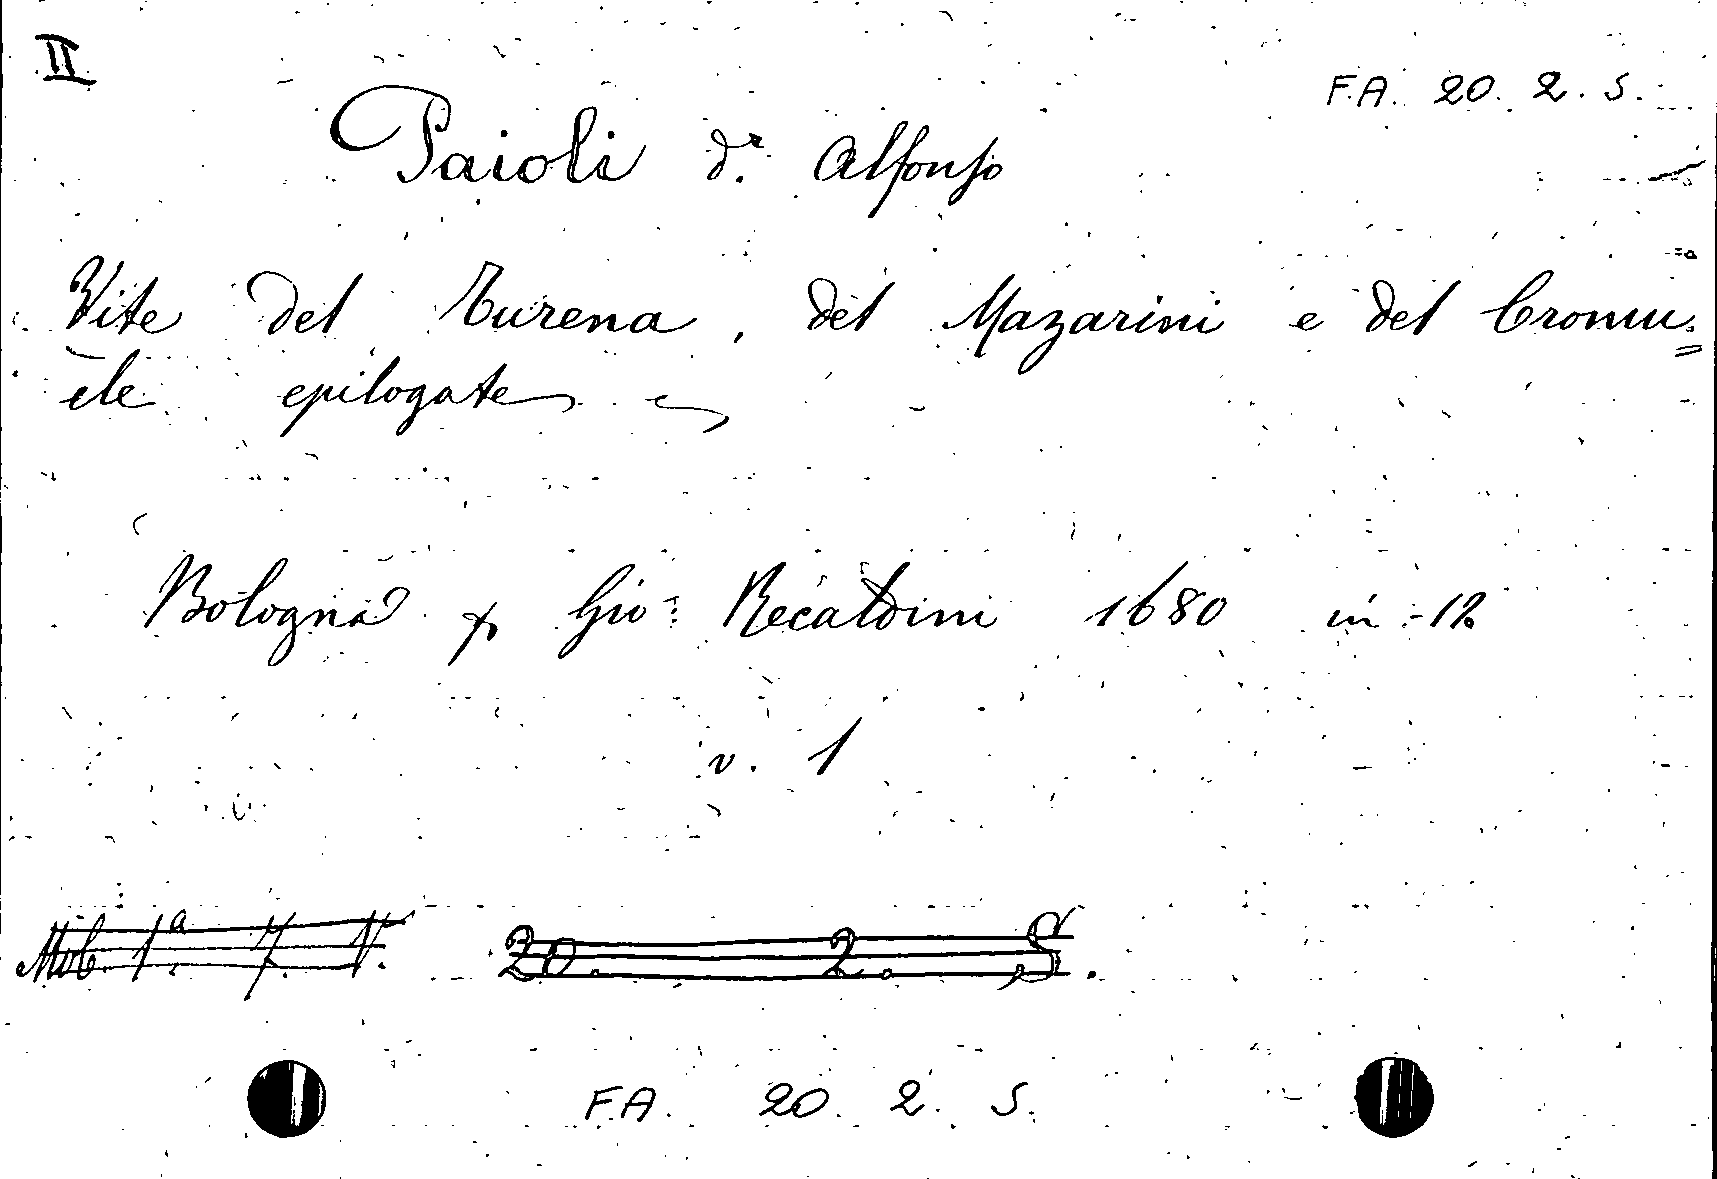 II
F.A. 20. 2. S.
Paioli d.r Alfonso
Vite del Turena, del Mazarini e del Cromu=
ele epilogate
Bologna p Gio: Recaldini 1680 in-12.
v. 1
Mob. 1.a 7. V. 20. 2. S.
F.A. 20. 2. S.